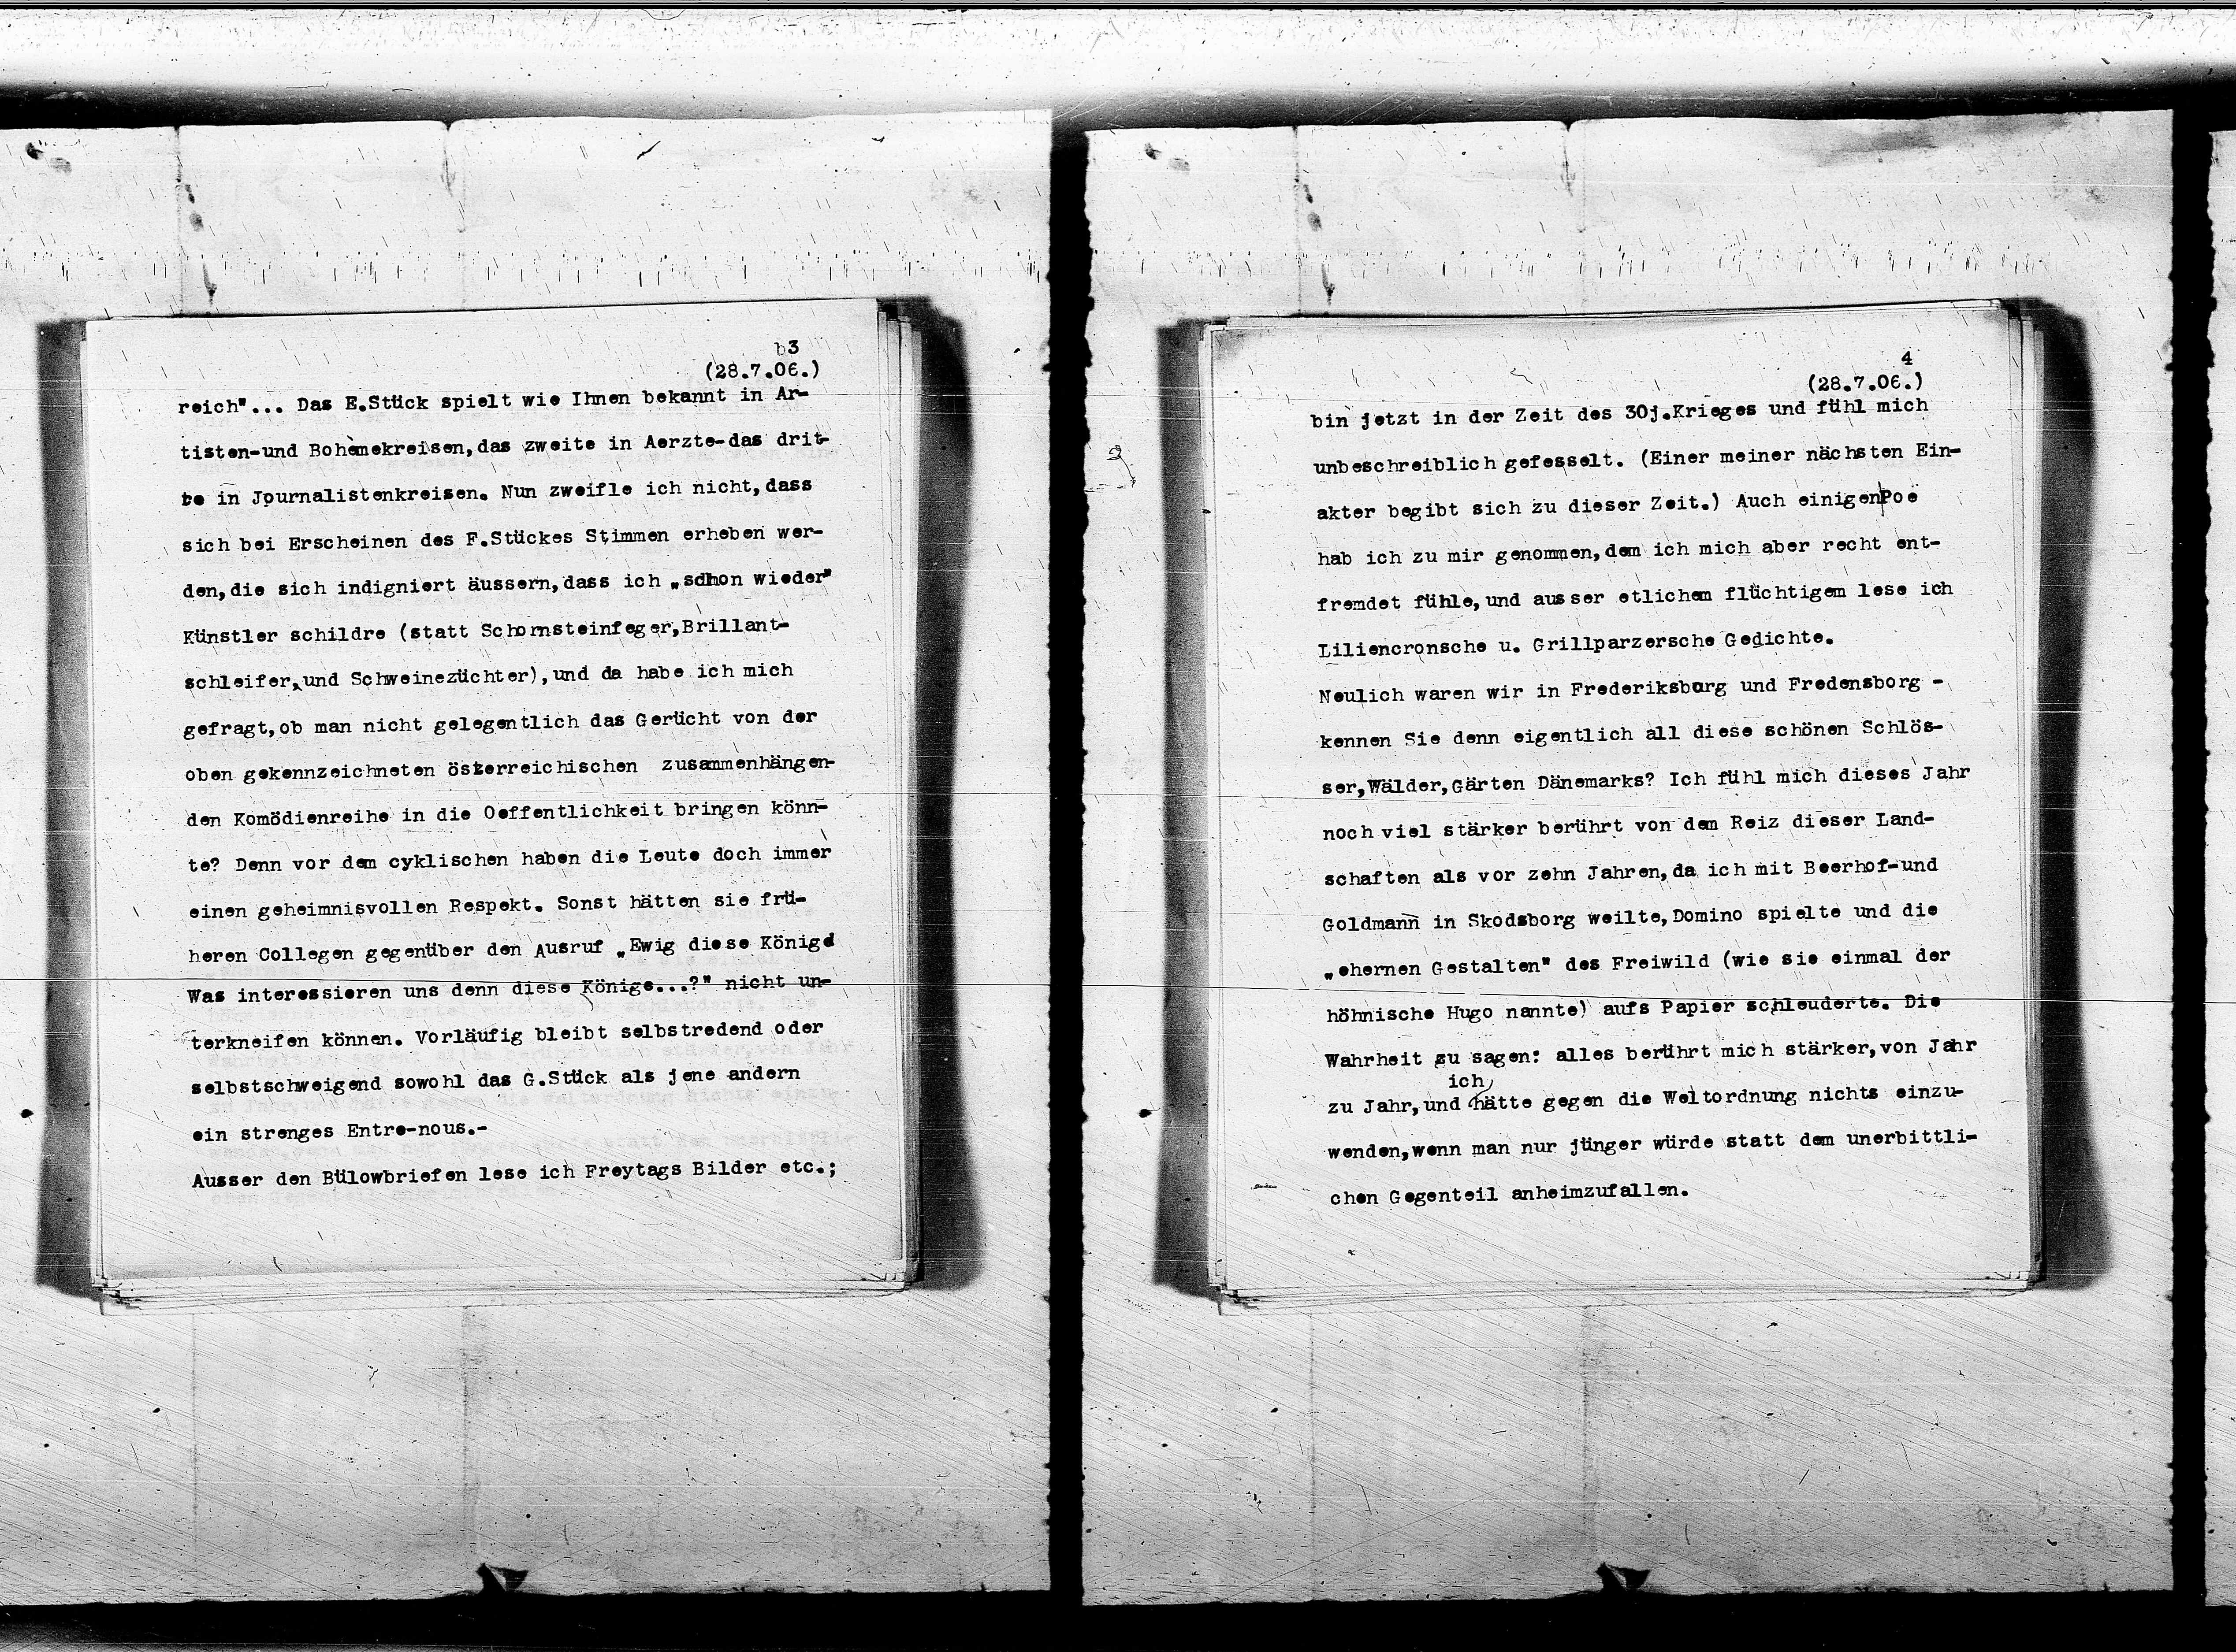 3
(28.7.06.)
reich"... Das E.Stück spielt wie Ihnen bekannt in Ar-
tisten-und Bohèmekreisen,das zweite in Aerzte-das drit-
te in Journalistenkreisen. Nun zweifle ich nicht,dass
sich bei Erscheinen des F.Stückes Stimmen erheben wer-
den,die sich indigniert äussern,dass ich „schon wieder"
Künstler schildre (statt Schornsteinfeger,Brillant-
schleifer,und Schweinezüchter),und da habe ich mich
gefragt,ob man nicht gelegentlich das Gerücht von der
oben gekennzeichneten österreichischen zusammenhängen-
den Komödienreihe in die Oeffentlichkeit bringen könn-
te? Denn vor dem cyklischen haben die Leute doch immer
einen geheimnisvollen Respekt. Sonst hätten sie frü-
heren Collegen gegenüber den Ausruf „Ewig diese Könige
Was interessieren uns denn diese Könige...?" nicht un-
terkneifen können. Vorläufig bleibt selbstredend oder
selbstschweigend sowohl das G.Stück als jene andern
ein strenges Entre-nous.-
Ausser den Bülowbriefen lese ich Freytags Bilder etc.;
4
(28.7.06.)
bin jetzt in der Zeit des 30j.Krieges und fühl mich
unbeschreiblich gefesselt. (Einer meiner nächsten Ein-
akter begibt sich zu dieser Zeit.) Auch einigen|Poe
hab ich zu mir genommen,dem ich mich aber recht ent-
fremdet fühle,und ausser etlichem flüchtigem lese ich
Liliencronsche u. Grillparzersche Gedichte.
Neulich waren wir in Frederiksburg und Fredensborg -
kennen Sie denn eigentlich all diese schönen Schlös-
ser,Wälder,Gärten Dänemarks? Ich fühl mich dieses Jahr
noch viel stärker berührt von dem Reiz dieser Land-
schaften als vor zehn Jahren,da ich mit Beerhof-und
Goldmann in Skodsborg weilte,Domino spielte und die
„ehernen Gestalten" des Freiwild (wie sie einmal der
höhnische Hugo nannte) aufs Papier schleuderte. Die
Wahrheit zu sagen: alles berührt mich stärker,von Jahr
ich
zu Jahr,und hätte gegen die Weltordnung nichts einzu-
wenden,wenn man nur jünger würde statt dem unerbittli-
chen Gegenteil anheimzufallen.